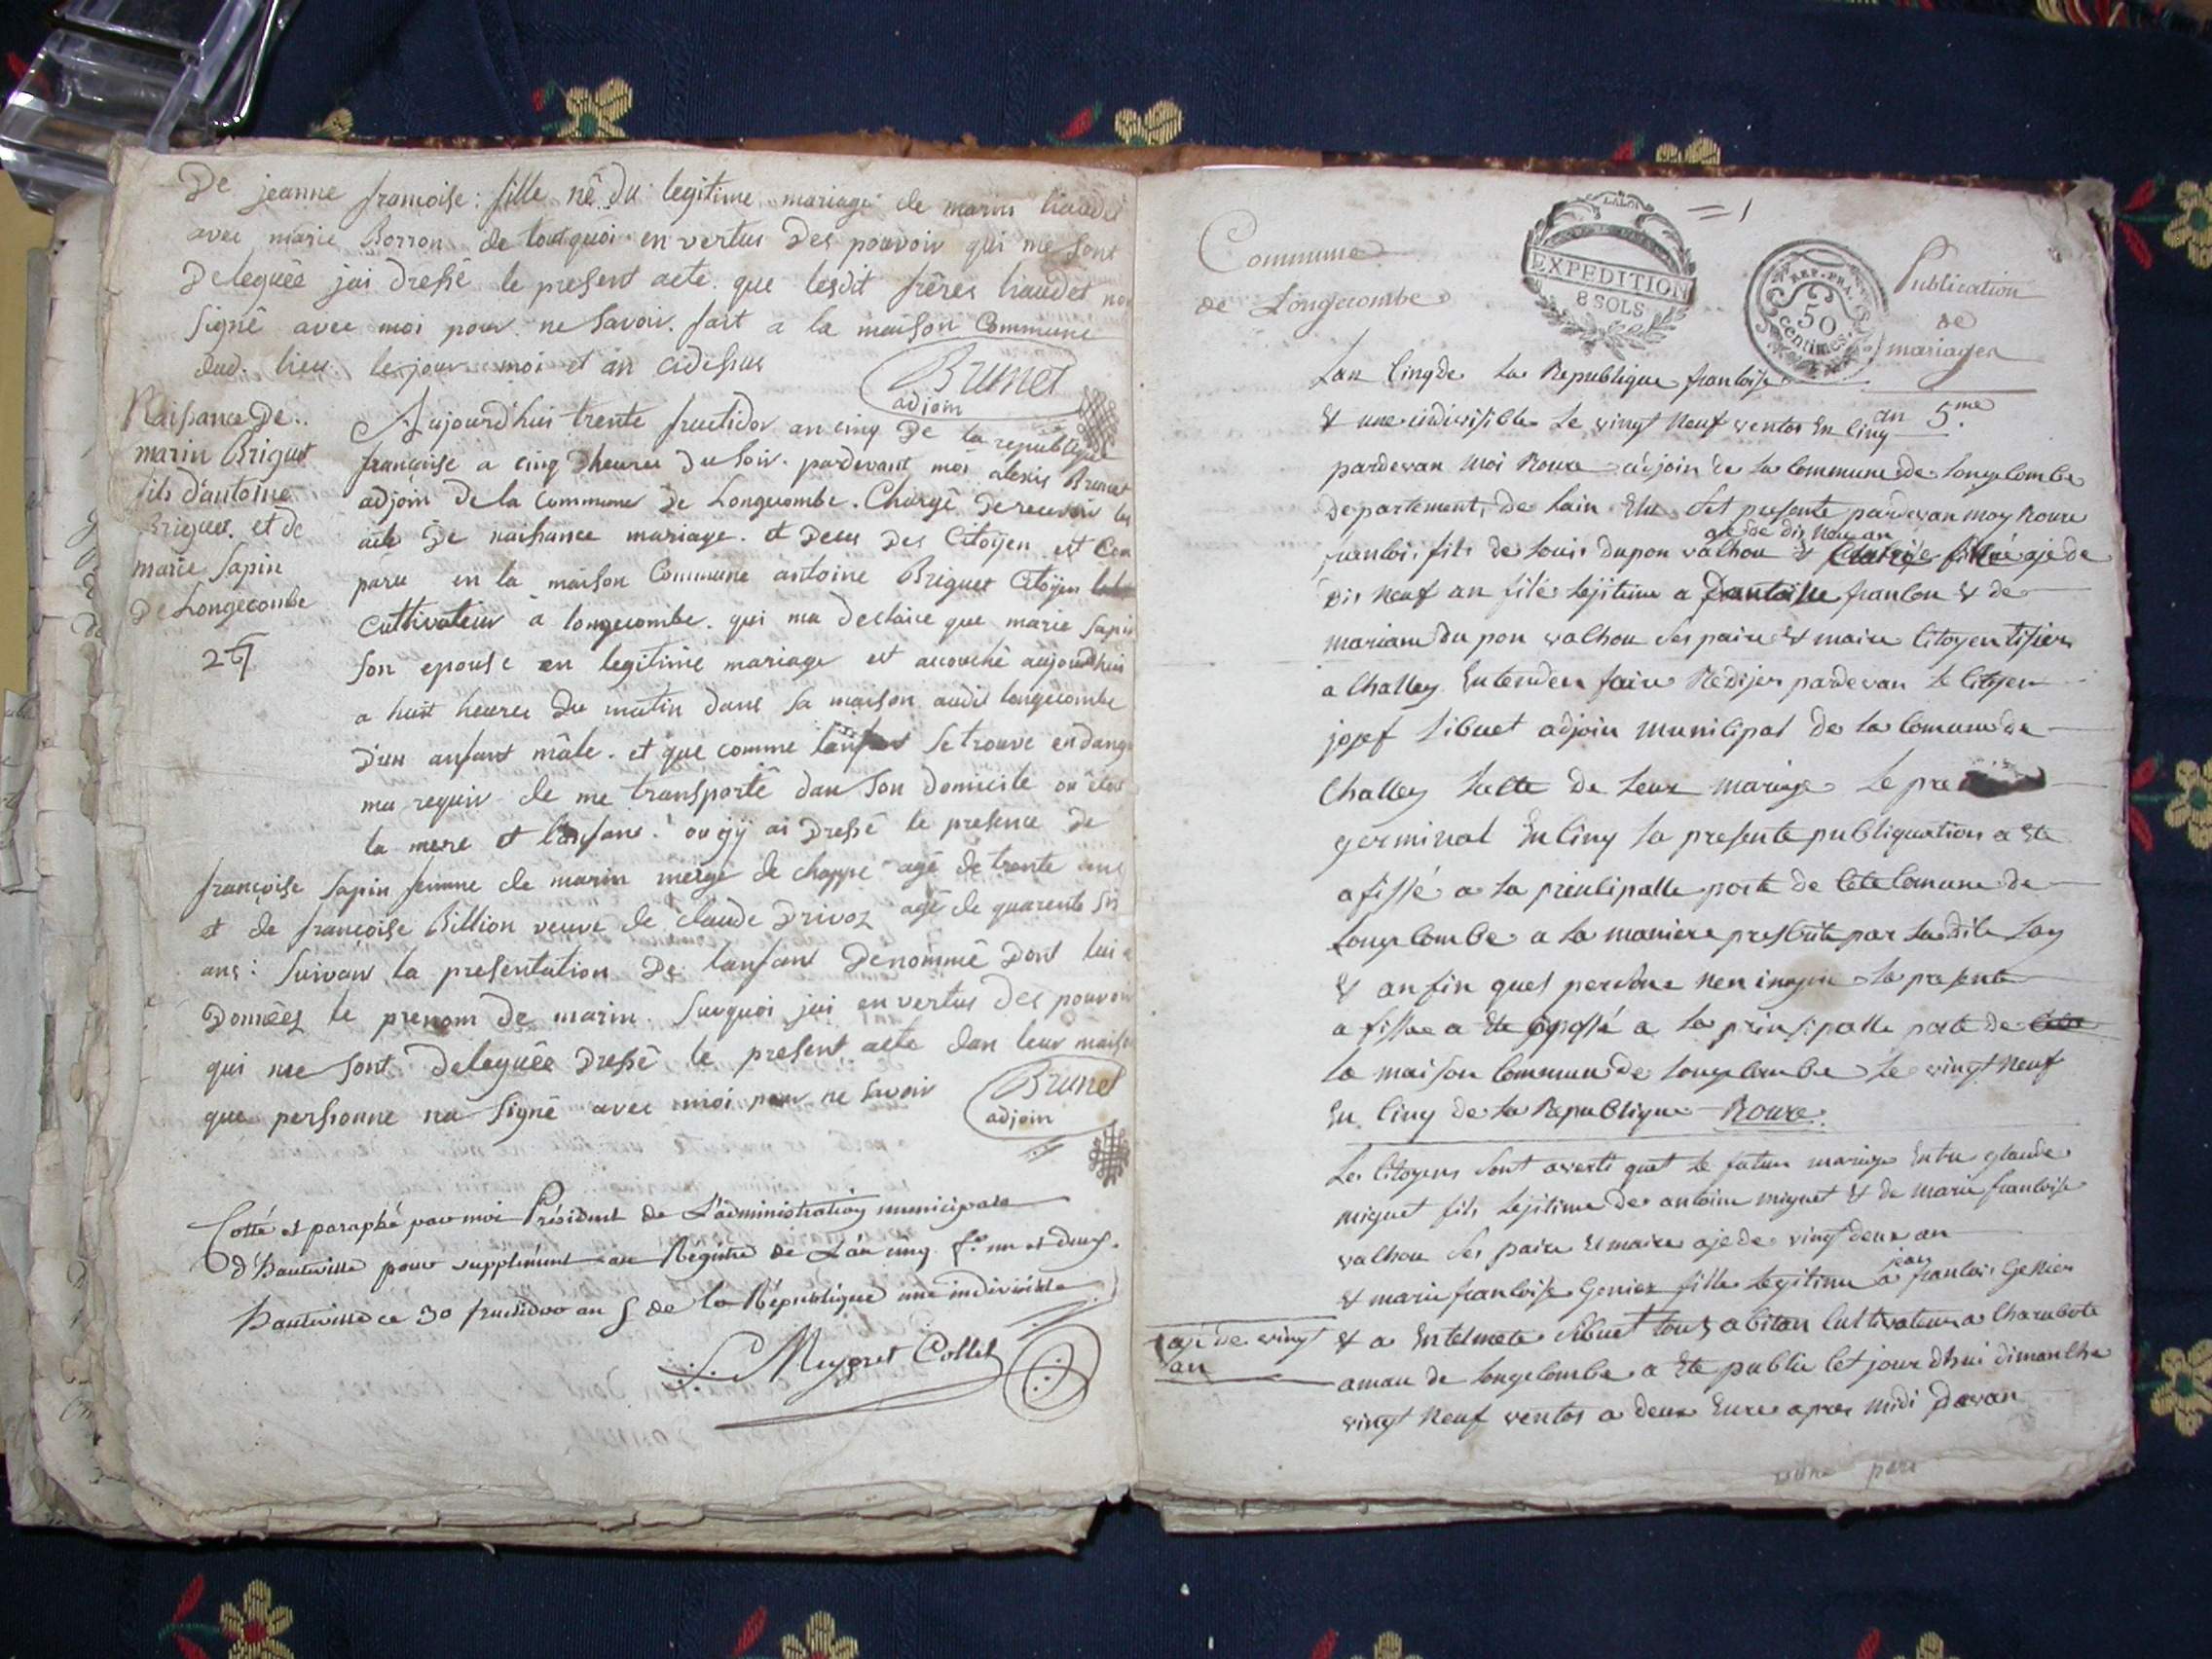 De jeanne françoise: fille né du legitime mariage de marin liaudet
avec marie Borron de tout quoi en vertus Des pouvoir qui me sont
Deleguée jai Dressé le present acte que lesdit frères liaudet non
signé avec moi pour ne savoir. fait a la maison Commune
dud. lieu le jour moi et an cidessus
Brunet
adjoin
Naissance De
marin Briguet
fils d'antoine
Briguet et de
marie Sapin
De Longecombe
Aujourdhui trente fructidor an cinq De la republique
française a cinq Dheures Du Soir. pardevant moi alexis Brunet
adjoin De la commune De Longecombe. Chargé De recevoir les
acte De naissance mariage. et Deces Des Citoÿen est Com
paru en la maison Commune antoine Briguet Citoÿen
Cultivateur a longecombe. qui ma Declaré que marie Sapin
Son epouse en legitime mariage est acouché aujourdhui
a huit heures Du matin Dans Sa maison audit longecombe
D'un anfant mâle. et que comme lanfant Se trouve en dange
ma requis de me transporté dan Son Domicile ou
la mere et l'anfant. ou jÿ ai Dressé le presence de
françoise Sapin femme de marin de chappe agé de trente ans
et de françoise Billion veuve de claude Drivoz agé de quarente Six
ans: Suivant la presentation De lanfant Denommé Dont lui a
Donnéez le prenom De marin. Surquoi jai en vertus Des pouvoir
qui me Sont Deleguée Dressé le present acte dan leur maison
que personne na Signé avec moi pour ne Savoir
Brunet
adjoin
Cotté et paraphé par moi Président de L'administration municipale
d'hauteville pour supplément au Registre de L'an cinq. f.° un et deux.
hauteville ce 30 fructidor an 5 de la République une indivisible
Collet
Commune
de Longecombe
LA LOI
EXPEDITION
8 SOLS
= 1
REP. FRA.
50
centimes
Publication
de
mariages
Lan Cinq de La Republique françoise
& une indivisible Le vingt neuf ventos En Cinq an 5.me
pardevan Moi Roux adjoin de La Commune de Longecombe
departement, De Lain Set presente pardevan moy Roux
francois fils de Louis dupon valhou & aje de
dis neuf an file lejitime a francon & de
mariane du pon valhou Ses paire & maire Citoyen
a Challey Entenden faire Redijer pardevan le Citoyen
josef Sibuet adjoin municipal De la Comune De
Challey Lacte De Leur mariage Le pre
germinal En Cinq la presente publiquation a Ete
afissé a La principalle porte de Cete Comune de
Longecombe a La maniere prescrite par La dite Loy
& an fin quel personne nen inore La presente
a fisse a Ete a La prinsipalle porte de
la maison Commune de Longecombe Le vingt neuf
En Cinq de La Republique Roux.
Les Citoyens Sont averti quet le futur mariage Entre glaude
miguet fils lejitime de antoine miguet & de marie francoise
valhou Ses paire & maire aje de vingt deux an
& marie francoise Geniez fille Legitime a jean francois Geniez
aje de vingt
an
& a Sibuet tous abitan Cultivateur a Charabote
amau de Longecombe a Ete publie Cet jour dhui dimanche
vingt neuf ventos a deux Eure apres midi Davan